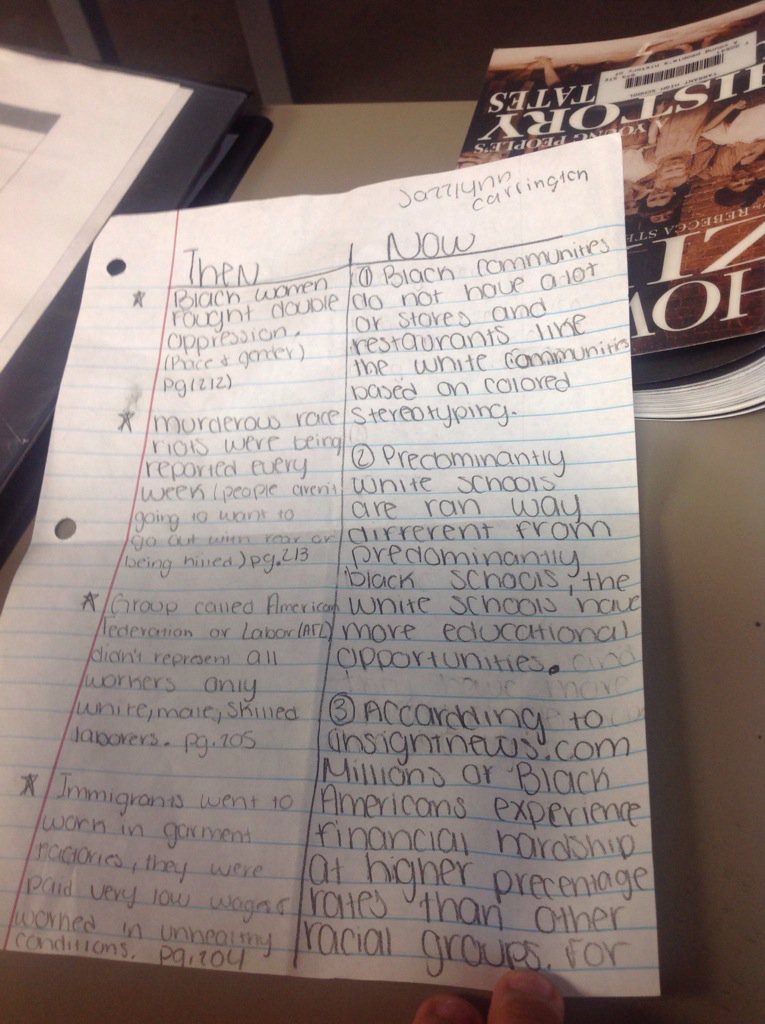 Jazzlynn
Carrington
Then
* Black women
fought double
oppression.
(Race & gender)
pg(212)
* murderous race
riots were being
reported every
week (people aren't
going to want to
go out with fear of
being killed) pg.213
* Group called American
Federation of Labor (AFL)
didn't represent all
workers only
white, male, skilled
laborers. pg.205
* Immigrants went to
work in garment
factories, they were
paid very low wages &
worked in unhealthy
conditions. pg.204
Now
① Black communities
do not have a lot
of stores and
restaurants like
the white communities
based on colored
stereotyping.
② Predominantly
white schools
are ran way
different from
predominantly
black schools, the
white schools have
more educational
opportunities. and
have more
③ Accordding to
insightnews.com
Millions of Black
Americans experience
financial hardship
at higher precentage
rates than other
racial groups. For
TATES
HISTORY
YOUNG PEOPLE'S
REBECCA STE
ZI
HOW